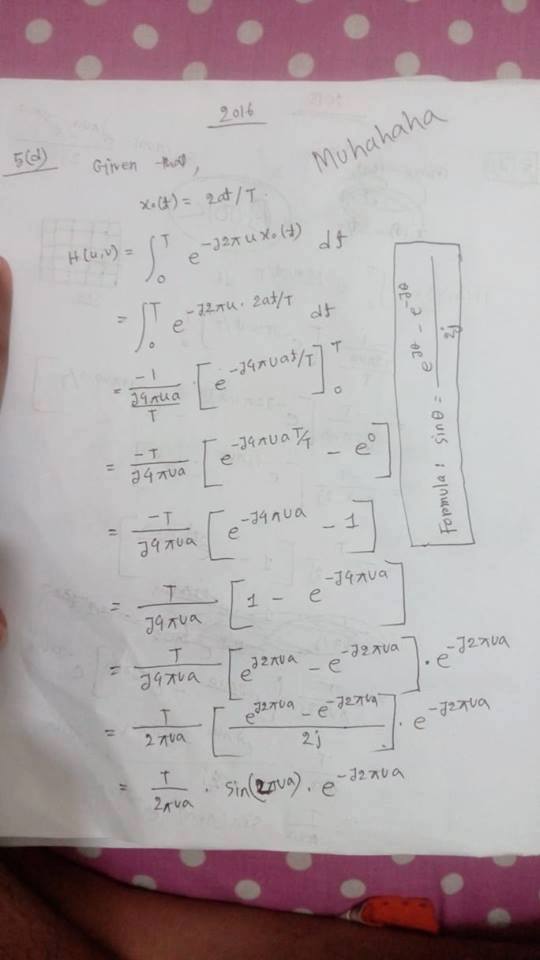 2016
Muhahaha
5(d) Given that,
x₀(t) = 2at/T
H(u,v) = ∫₀ᵀ e^(-j2πu x₀(t)) dt
= ∫₀ᵀ e^(-j2πu · 2at/T) dt
= -1/(j4πua/T) [e^(-j4πuat/T)]₀ᵀ
= -T/(j4πua) [e^(-j4πuaT/T) - e⁰]
= -T/(j4πua) [e^(-j4πua) - 1]
= T/(j4πua) [1 - e^(-j4πua)]
= T/(j4πua) [e^(j2πua) - e^(-j2πua)] · e^(-j2πua)
= T/(2πua) [(e^(j2πua) - e^(-j2πua))/2j] · e^(-j2πua)
= T/(2πua) · sin(2πua) · e^(-j2πua)
formula: sinθ = (e^(jθ) - e^(-jθ))/2j